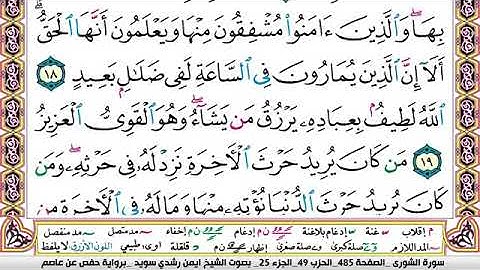 بِهَا ۖ وَٱلَّذِينَ ءَامَنُوا۟ مُشْفِقُونَ مِنْهَا وَيَعْلَمُونَ أَنَّهَا ٱلْحَقُّ ۗ
أَلَآ إِنَّ ٱلَّذِينَ يُمَارُونَ فِى ٱلسَّاعَةِ لَفِى ضَلَٰلٍۭ بَعِيدٍ ١٨
ٱللَّهُ لَطِيفٌۢ بِعِبَادِهِۦ يَرْزُقُ مَن يَشَآءُ ۖ وَهُوَ ٱلْقَوِىُّ ٱلْعَزِيزُ
١٩ مَن كَانَ يُرِيدُ حَرْثَ ٱلْءَاخِرَةِ نَزِدْ لَهُۥ فِى حَرْثِهِۦ ۖ وَمَن
كَانَ يُرِيدُ حَرْثَ ٱلدُّنْيَا نُؤْتِهِۦ مِنْهَا وَمَا لَهُۥ فِى ٱلْءَاخِرَةِ مِن
م إقلاب غنة إدغام بلاغنة ن م إدغام ن م إخفاء مد متصل مد منفصل
المد اللازم صلة كبرى صلة صغرى ن م إظهار قلقلة ا و ى طبيعي اللون الأزرق لا يلفظ
سورة الشورى _الصفحة 485_ الحزب 49_ الجزء 25_ بصوت الشيخ ايمن رشدي سويد _برواية حفص عن عاصم